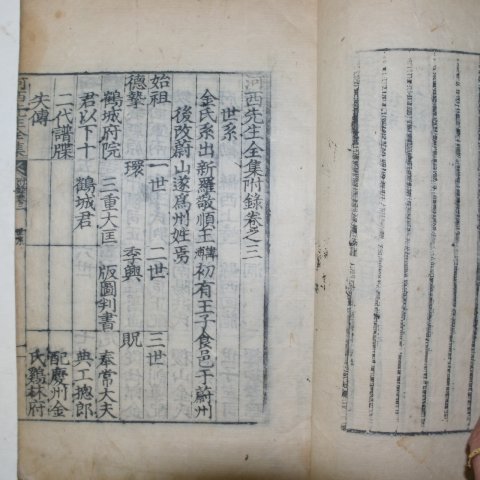 河西先生全集附錄卷之三
世系
金氏系出新羅敬順王傅初有王子食邑于蔚州
後改蔚山遂爲州姓焉
始祖 一世 二世 三世
德摯 環 季興 貺
鶴城府院 三重大匡 版圖判書 奉常大夫
君以下十 鶴城君 典工摠郎
二代譜牒 配慶州金
失傳 氏鷄林府
河西先生全集